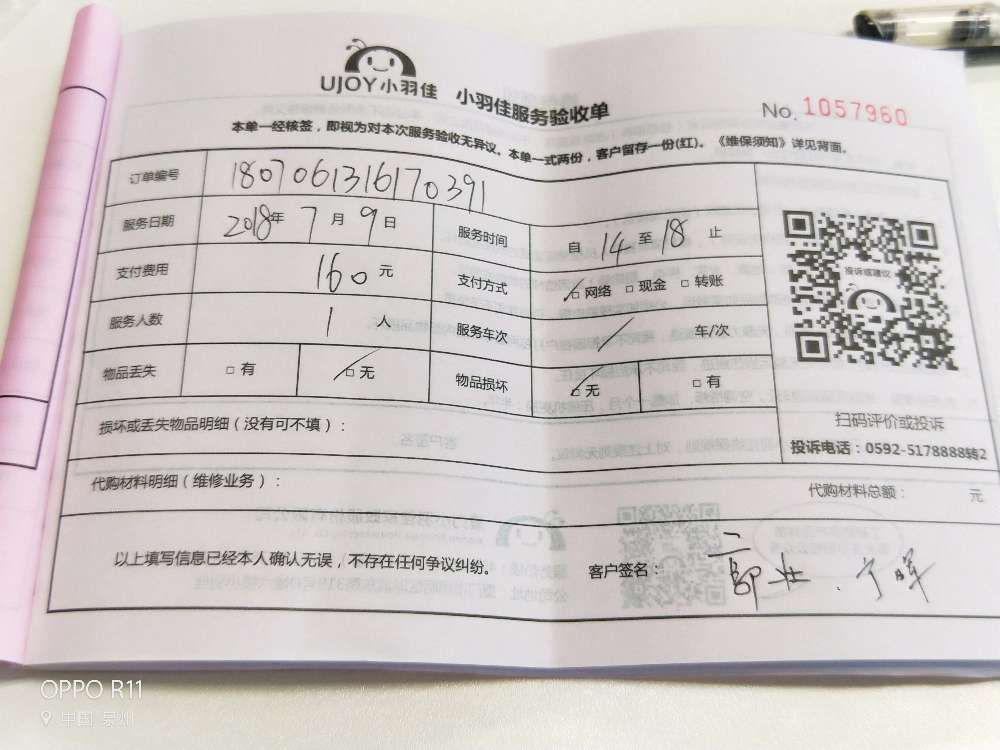 UJOY小羽佳 小羽佳服务验收单
No. 1057960
本单一经核签，即视为对本次服务验收无异议。本单一式两份，客户留存一份(红)。《维保须知》详见背面。
订单编号 1807061316170391
服务日期 2018年 7月 9日 服务时间 自 14 至 18 止
支付费用 160 元 支付方式 ☑网络 □现金 □转账
服务人数 1 人 服务车次 / 车/次
物品丢失 □有 ☑无 物品损坏 ☑无 □有
投诉或建议
扫码评价或投诉
投诉电话：0592-5178888转2
损坏或丢失物品明细（没有可不填）：
代购材料明细（维修业务）： 代购材料总额： 元
以上填写信息已经本人确认无误，不存在任何争议纠纷。 客户签名：
OPPO R11
中国, 泉州